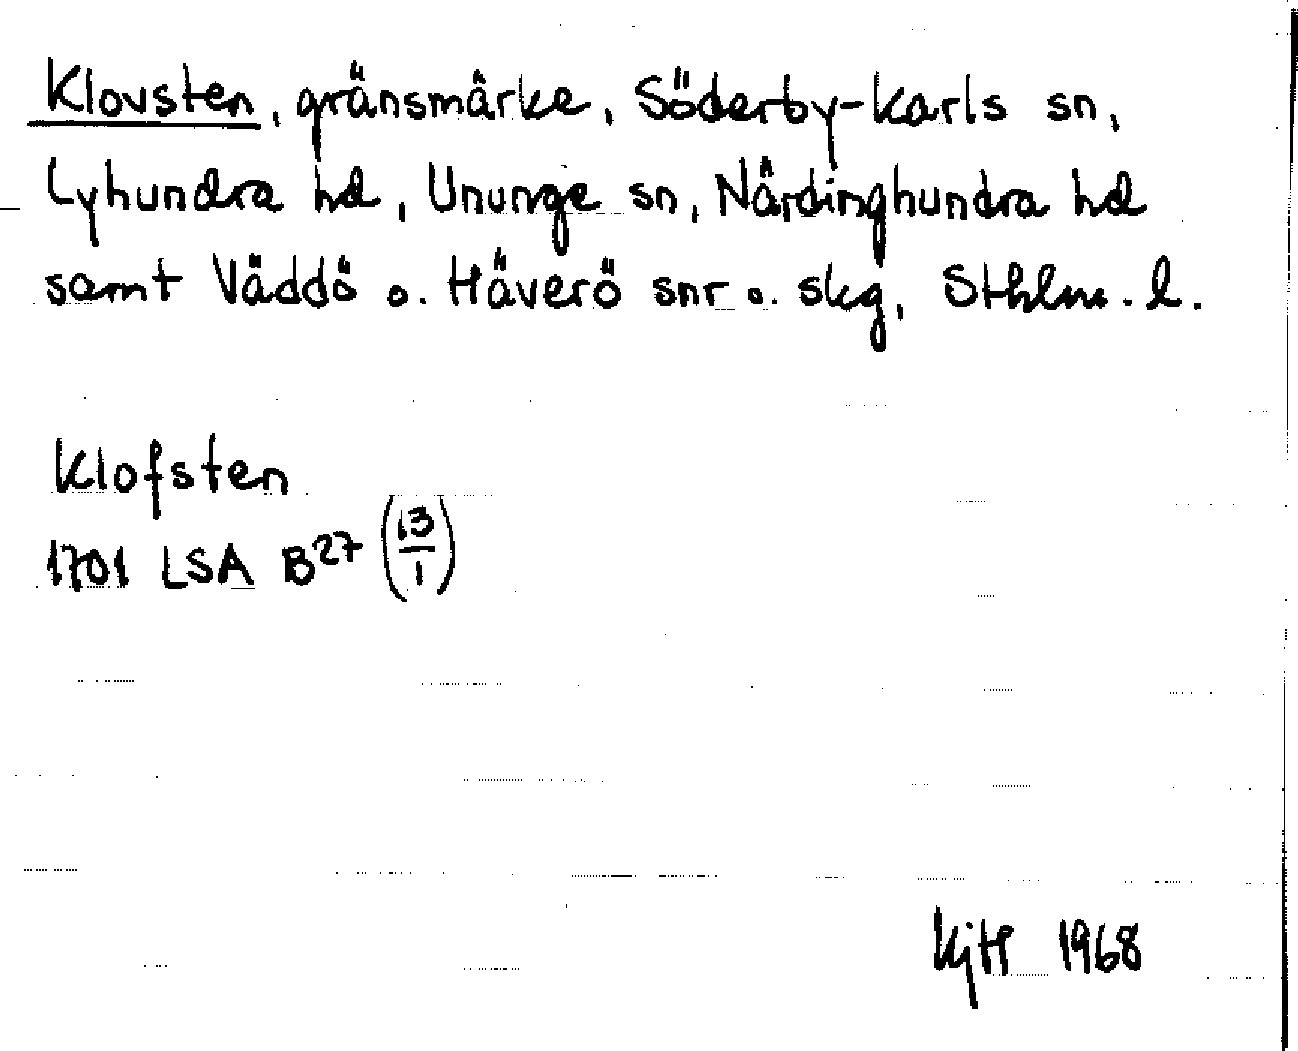 Klovsten, gränsmärke, Söderby-Karls sn,
Lyhundra hd, Ununge sn, Närdinghundra hd
samt Väddö o. Häverö snr o. skg, Sthlm. l.
Klofsten
1701 LSA B27 (13/1)
KjtP 1968